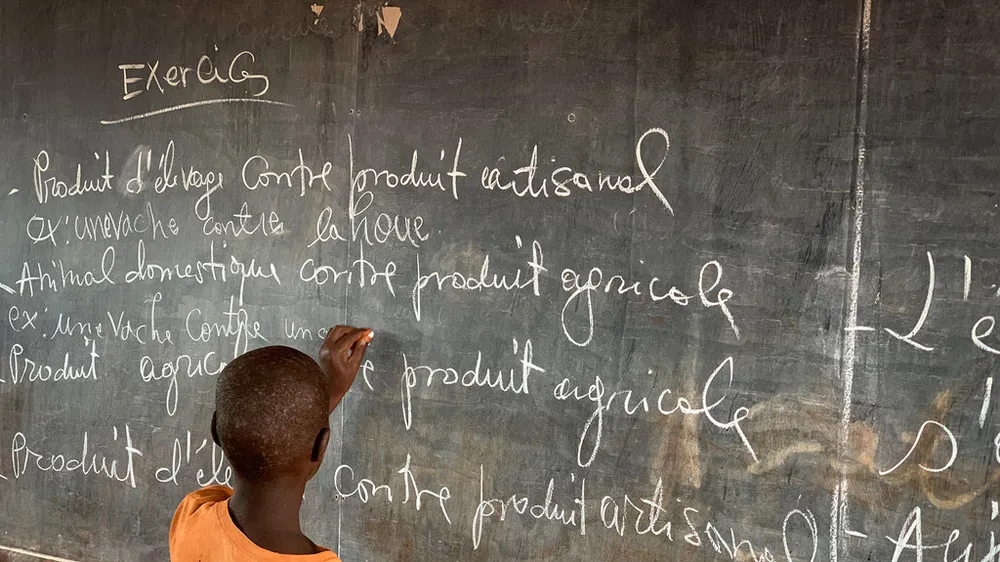 Exercice
- Produit d'élevage Contre produit artisanal
ex: une vache contre la houe.
- Animal domestique contre produit agricole
ex: une vache contre une
- Produit produit agricole
Produit contre produit artisanal